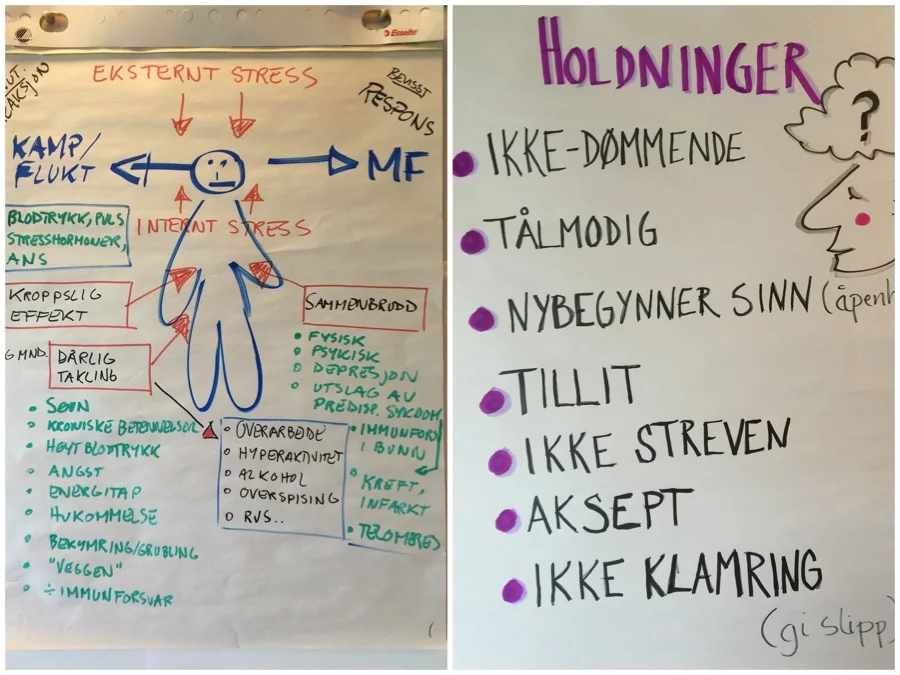 Esselte
EKSTERNT STRESS
BEVISST
RESPONS
KAMP/
FLUKT
MF
INTERNT STRESS
BLODTRYKK, PULS
STRESSHORMONER,
ANS
KROPPSLIG
EFFEKT
6 MND.
DÅRLIG
TAKLING
SØVN
KRONISKE BETENNELSER
HØYT BLODTRYKK
ANGST
ENERGITAP
HUKOMMELSE
BEKYMRING/GRUBLING
"VEGGEN"
÷ IMMUNFORSVAR
OVERARBEIDE
HYPERAKTIVITET
ALKOHOL
OVERSPISING
RUS..
SAMMENBRUDD
FYSISK
PSYKISK
DEPRESJON
UTSLAG AV
PREDISP. SYKDOM
IMMUNFORSV
I BUNN
KREFT,
INFARKT
TELOMERES
HOLDNINGER
?
IKKE-DØMMENDE
TÅLMODIG
NYBEGYNNER SINN (åpenh
TILLIT
IKKE STREVEN
AKSEPT
IKKE KLAMRING
(gi slipp)